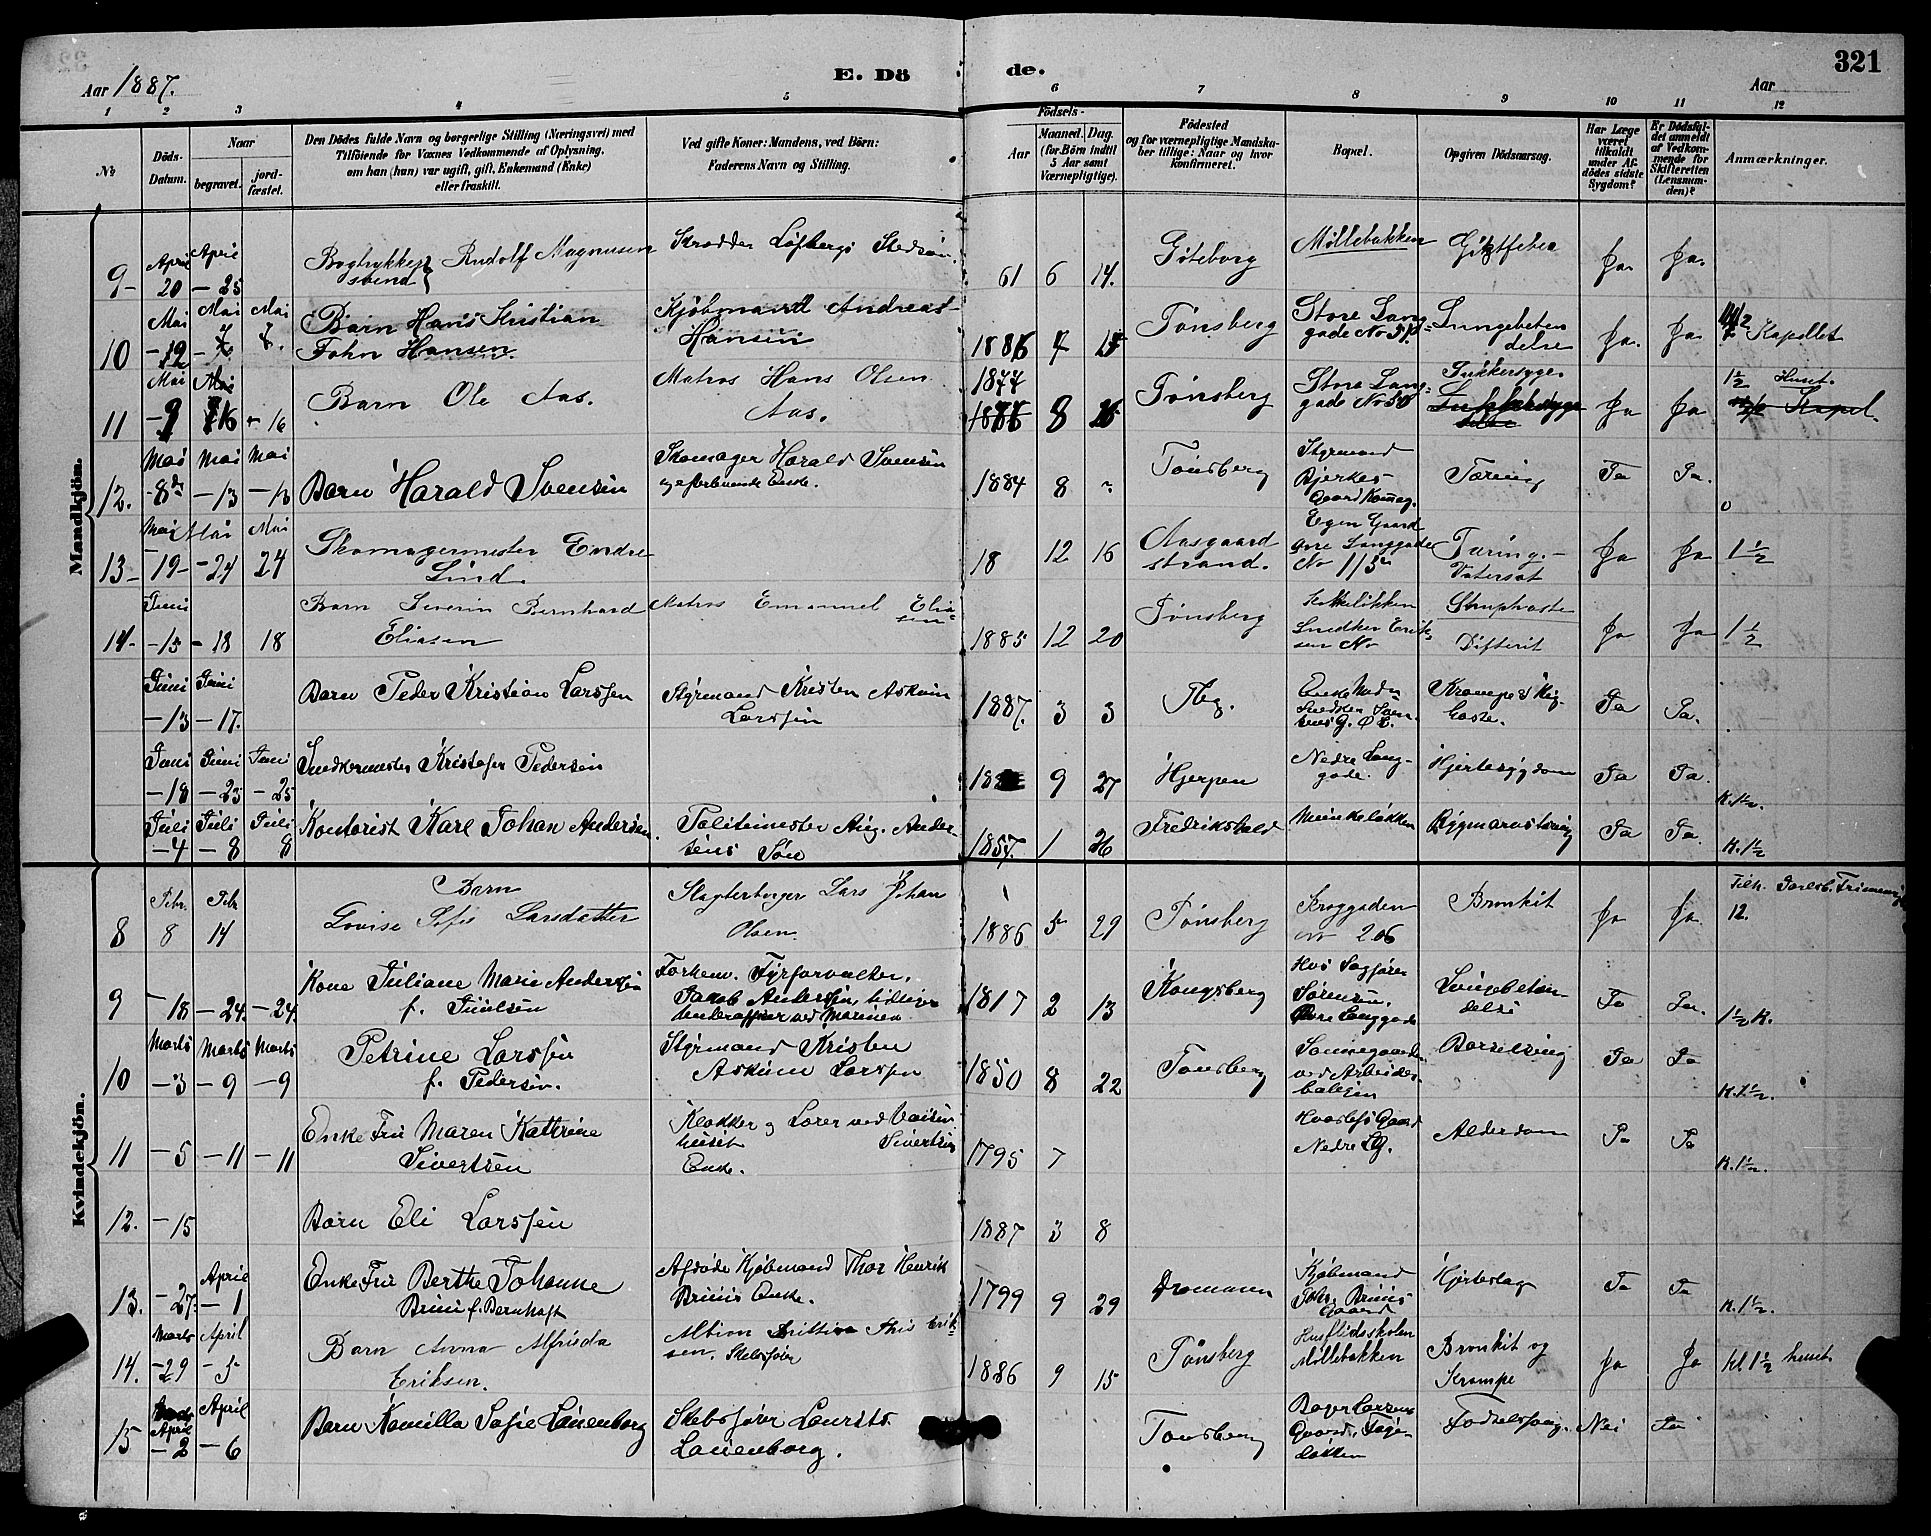 Aar 1887.
E. Dö de.
Aar
321
1 2 3 4 5 6 7 8 9 10 11 12
No
Döds-Datum.
Naar
begravet.
jord-fæstet.
Den Dödes fulde Navn og borgerlige Stilling (Næringsvei) med
Tilföiende for Voxnes Vedkommende af Oplysning,
om han (hun) var ugift, gift, Enkemand (Enke)
eller fraskilt.
Ved gifte Koner: Mandens, ved Börn:
Faderens Navn og Stilling.
Födsels-
Aar
Maaned. Dag.
(for Börn indtil
5 Aar samt
Værnepligtige).
Födested
og for værnepligtige Mandska-
ber tillige: Naar og hvor
konfirmeret.
Bopæl.
Opgiven Dödsaarsag.
Har Læge
været
tilkaldt
under Af-
dödes sidste
Sygdom?
Er Dödsfal-
det anmeldt
af Vedkom-
mende for
Skifteretten
(Lensman-
den)?
Anmærkninger.
Mandkjön.
9 April 20 April 25 Rudolf Magnusen Skrædder Löfbergs Stedsøn. 61 6 14. Göteborg Möllebakken Ja. Ja.
10 Mai Mai Mai Barn Hans Kristian
John Hansen. Kjøbmand Andreas
Hansen Tønsberg Store Lang-
gade Lungebeten
delse Ja. Ja Kapellet
11 Mai Mai 16 16 Barn Ole Aas. Matros Hans Olsen
Aas. 8 Tønsberg Store Lang-
gade No 50 Ja Ja 1½ Huset.
12. Mai 8de Mai 13 Mai 13 Barn Harald Svensen Skomager Harald Svensen
og efterlevende Enke. 1884 8 Tönsberg Styrmand
Bjerkes
Gaard Tæring Ja Ja.
13 Mai 19 Mai 24 Mai 24 Skomagermester Endre
Lind. 18 12 16 Aasgaard
strand. Egen Gaard
Langgade
No 115 Tæring.
Vatersot Ja Ja 1½
14. Juni 15 18 18 Barn Severin Bernhard
Eliasen Matros Emanuel Elia
sen 1885 12 20 Tønsberg
Snedker Erik-
sen No Struphoste
Difterit Ja Ja 1½
Juni 13 Juni 17. Barn Peder Kristian Larssen Styrmand Kristen Askum
Larssen 1887. 3 3 Tbg. Krampe & Kig
hoste. Ja Ja.
Juni 18 Juni 23 Juni 25 Snedkermester Kristofer Pedersen 9 27 Hjerpen Nedre Lang-
gade. Hjertesygdom Ja Ja. K. 1½.
Juli 4 Juli 8 Juli 8 Kontorist Karl Johan Andersen. Politimester Aug. Ander-
sens Søn 1857. 1 26 Fredrikshald Munkeløkken Rygmarvstæring Ja Ja. K. 1½
Kvindekjön.
8 Febr. 8 Feb 14 Barn
Lovise Sofie Larsdatter Slagterborger Lars Johan
Olsen. 1886 5 29 Tønsberg Kroggaden
No 206 Bronkit Ja Ja 12.
9 18 24. 24. Kone Juliane Marie Anderssen
f. Juulsen Forhenv. Fyrforvalter,
Jacob Anderssen, tidligere
Underofficer ved Marinen 1817 2 13 Kongsberg Hos Sagfører
Sørensen,
Øvre Langgade Lungebetæn-
delse Ja Ja. 1½ K.
10 Marts 3 Marts 9 Marts 9 Petrine Larssen
f. Pedersen. Styrmand Kristen
Askum Larssen 1850 8 22 Tønsberg
ved Arbeider-
boligen Barselseng Ja Ja K. 1½.
11 5 11 11 Enke Fru Maren Kathrine
Sivertsen Klokker og Lærer ved Vaisen
huset Sivertsens
Enke. 1795 7 Gaard
Nedre Lg. Alderdom Ja Ja K. 1½.
12. 15 Barn Eli Larssen 1887 3 8
13. 27. April 1 Enke Fru Berthe Johanne
Bruun f. Bernhoft Afdøde Kjøbmand Thor Henrik
Bruuns Enke. 1799 9 29 Drammen Kjøbmand
Bruuns
Gaard Hjerteslag Ja Ja K. 1½.
14. Marts 29 April 5 Barn Anna Alfrida
Eriksen. Erik-
sen. Skibsfører 1886 9 15 Tønsberg Husflidsskolen
Møllebakken Bronkit og
Krampe Ja Ja Kl 1½ huset
15 April 2 April 6 Barn Kamilla Sofie Lauenborg Skibsfører Laurits
Lauenborg. Tønsberg
Gaard,
Løkken Nei Ja